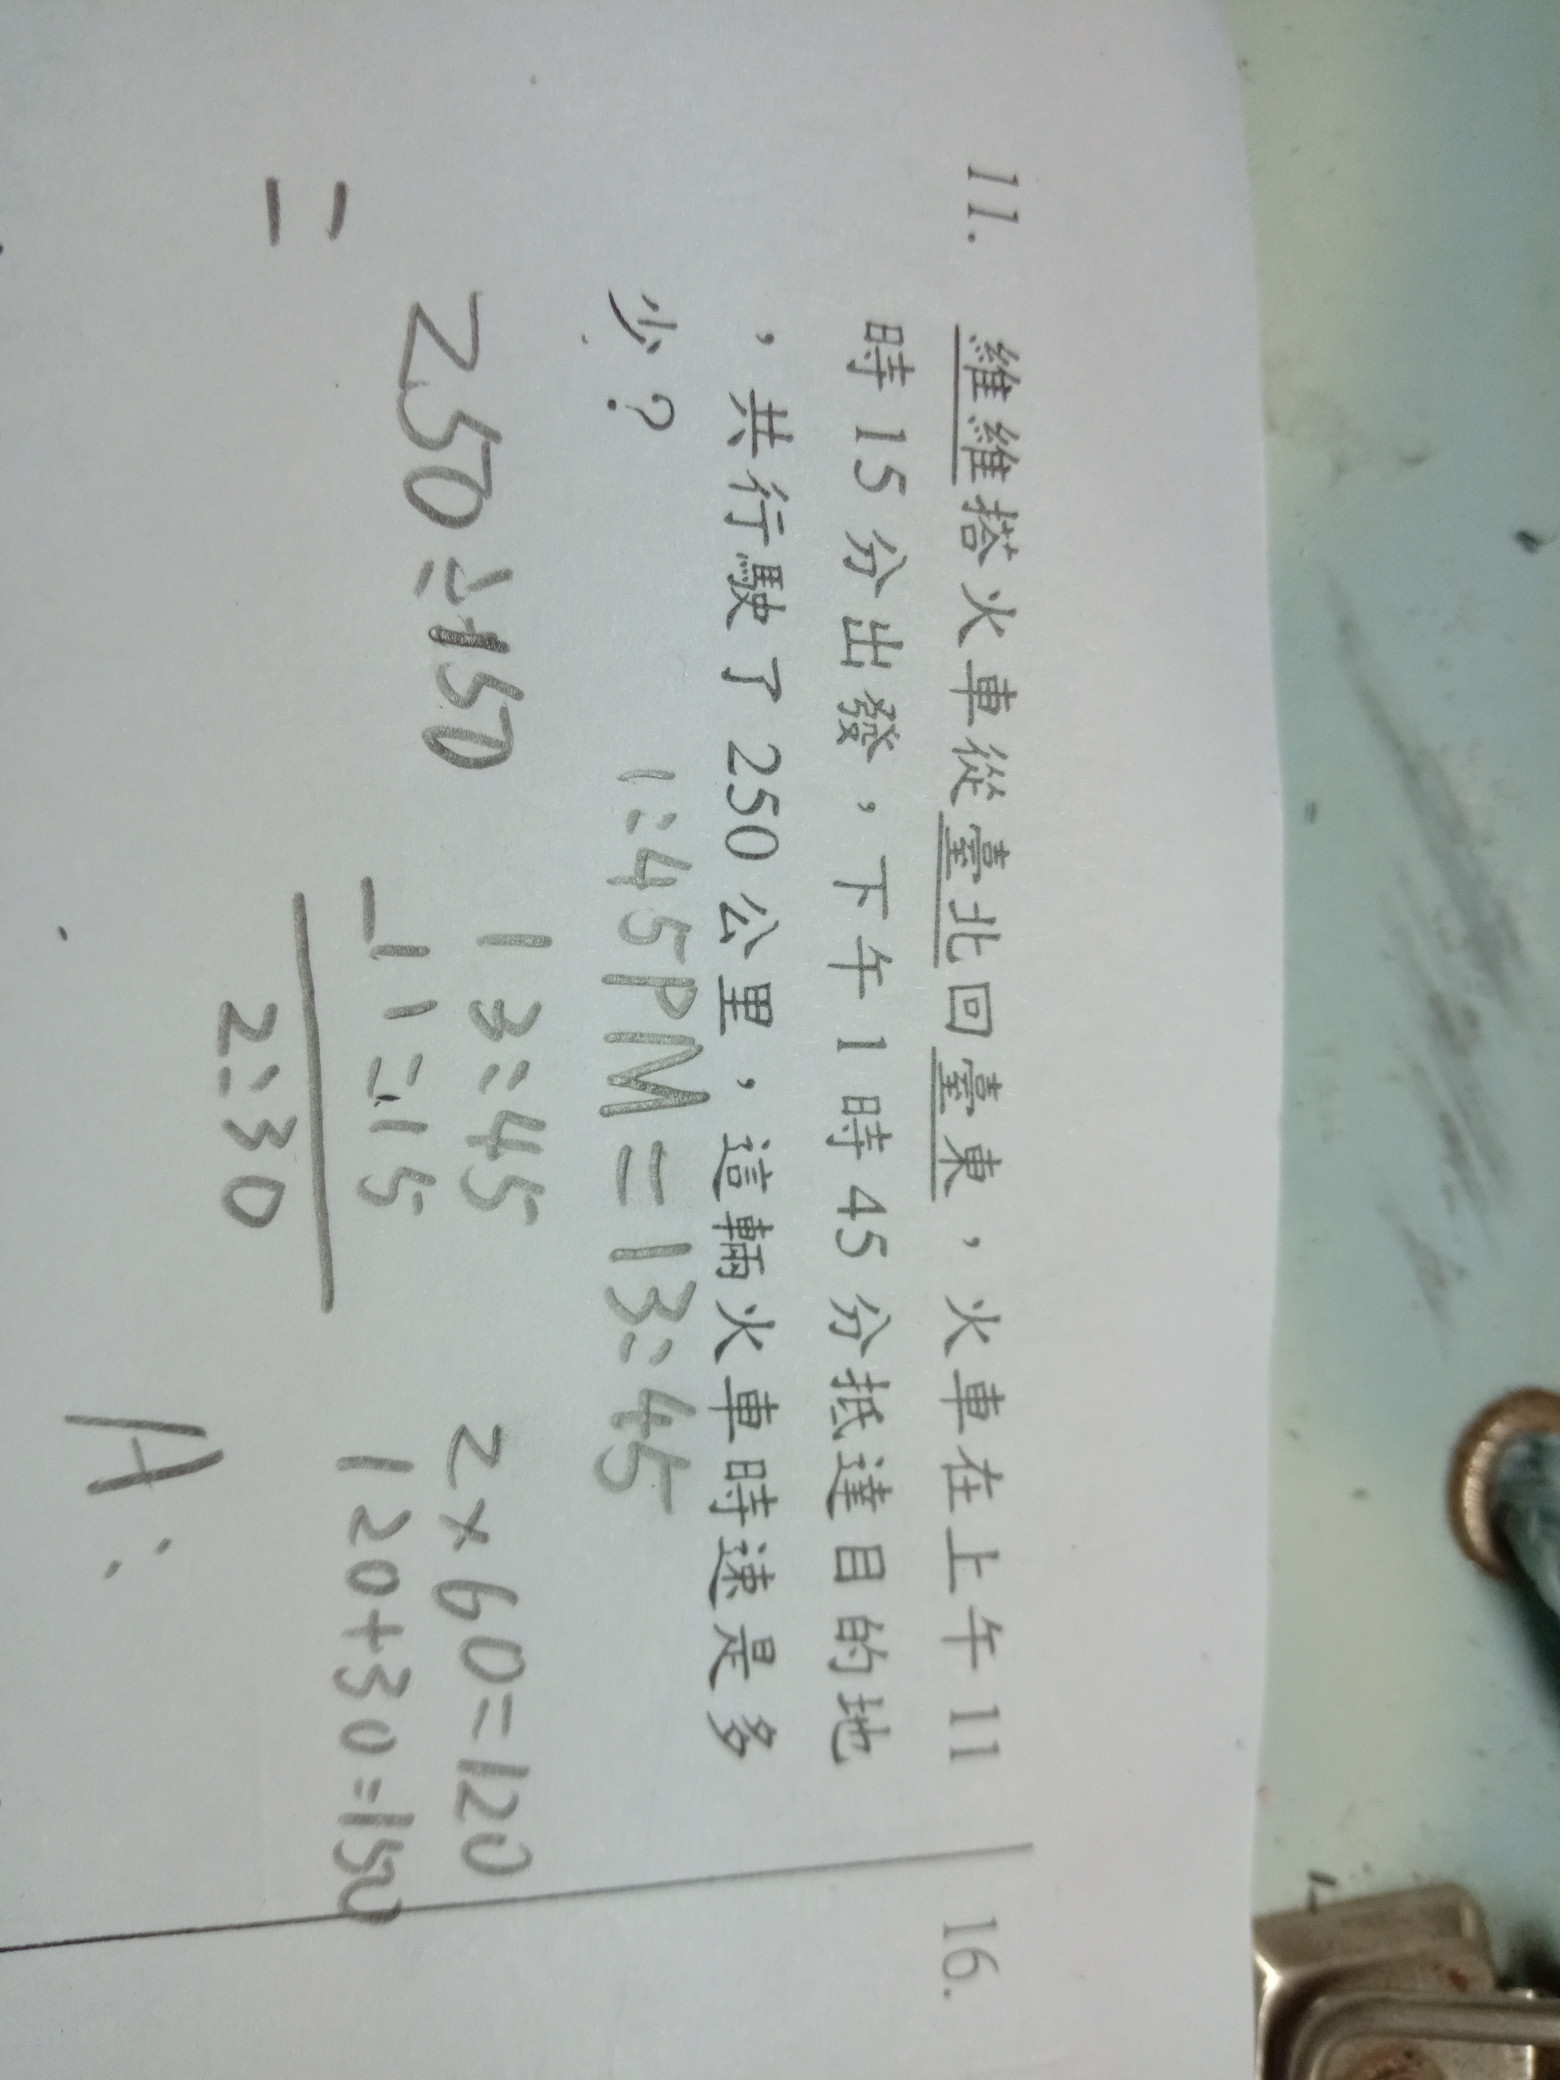 11. 維維搭火車從臺北回臺東，火車在上午 11
時 15 分出發，下午 1 時 45 分抵達目的地
，共行駛了 250 公里，這輛火車時速是多
少？
1:45PM=13:45
250÷150
13:45
-11:15
2:30
2×60=120
120+30=150
=
A:
16.